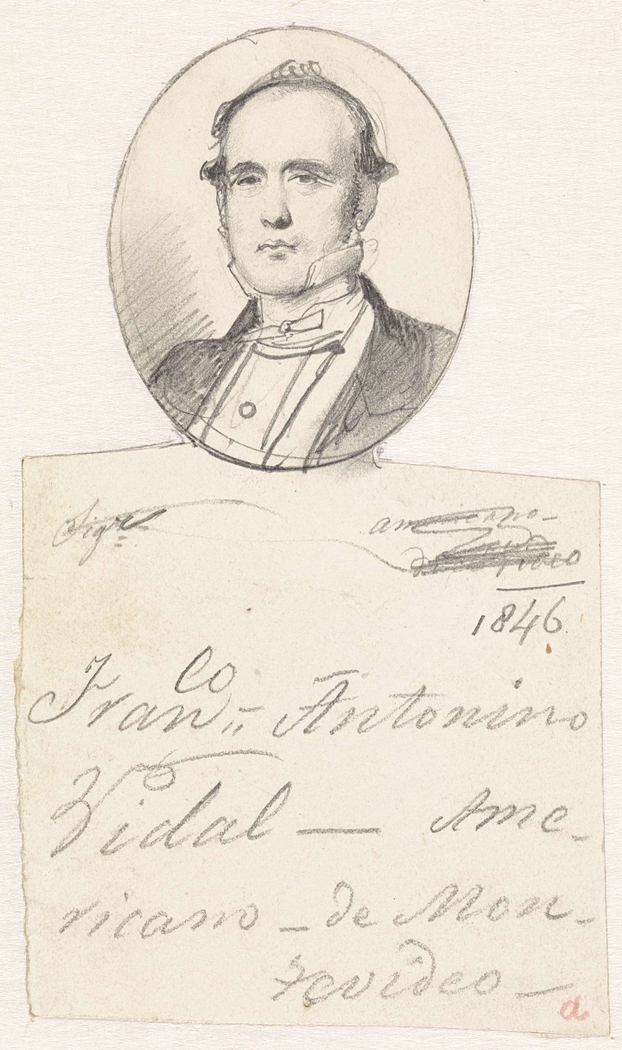 Sigr
americano-
de
1846.
Franco Antonino
Vidal — Ame-
ricano - de Mon-
tevideo -
a